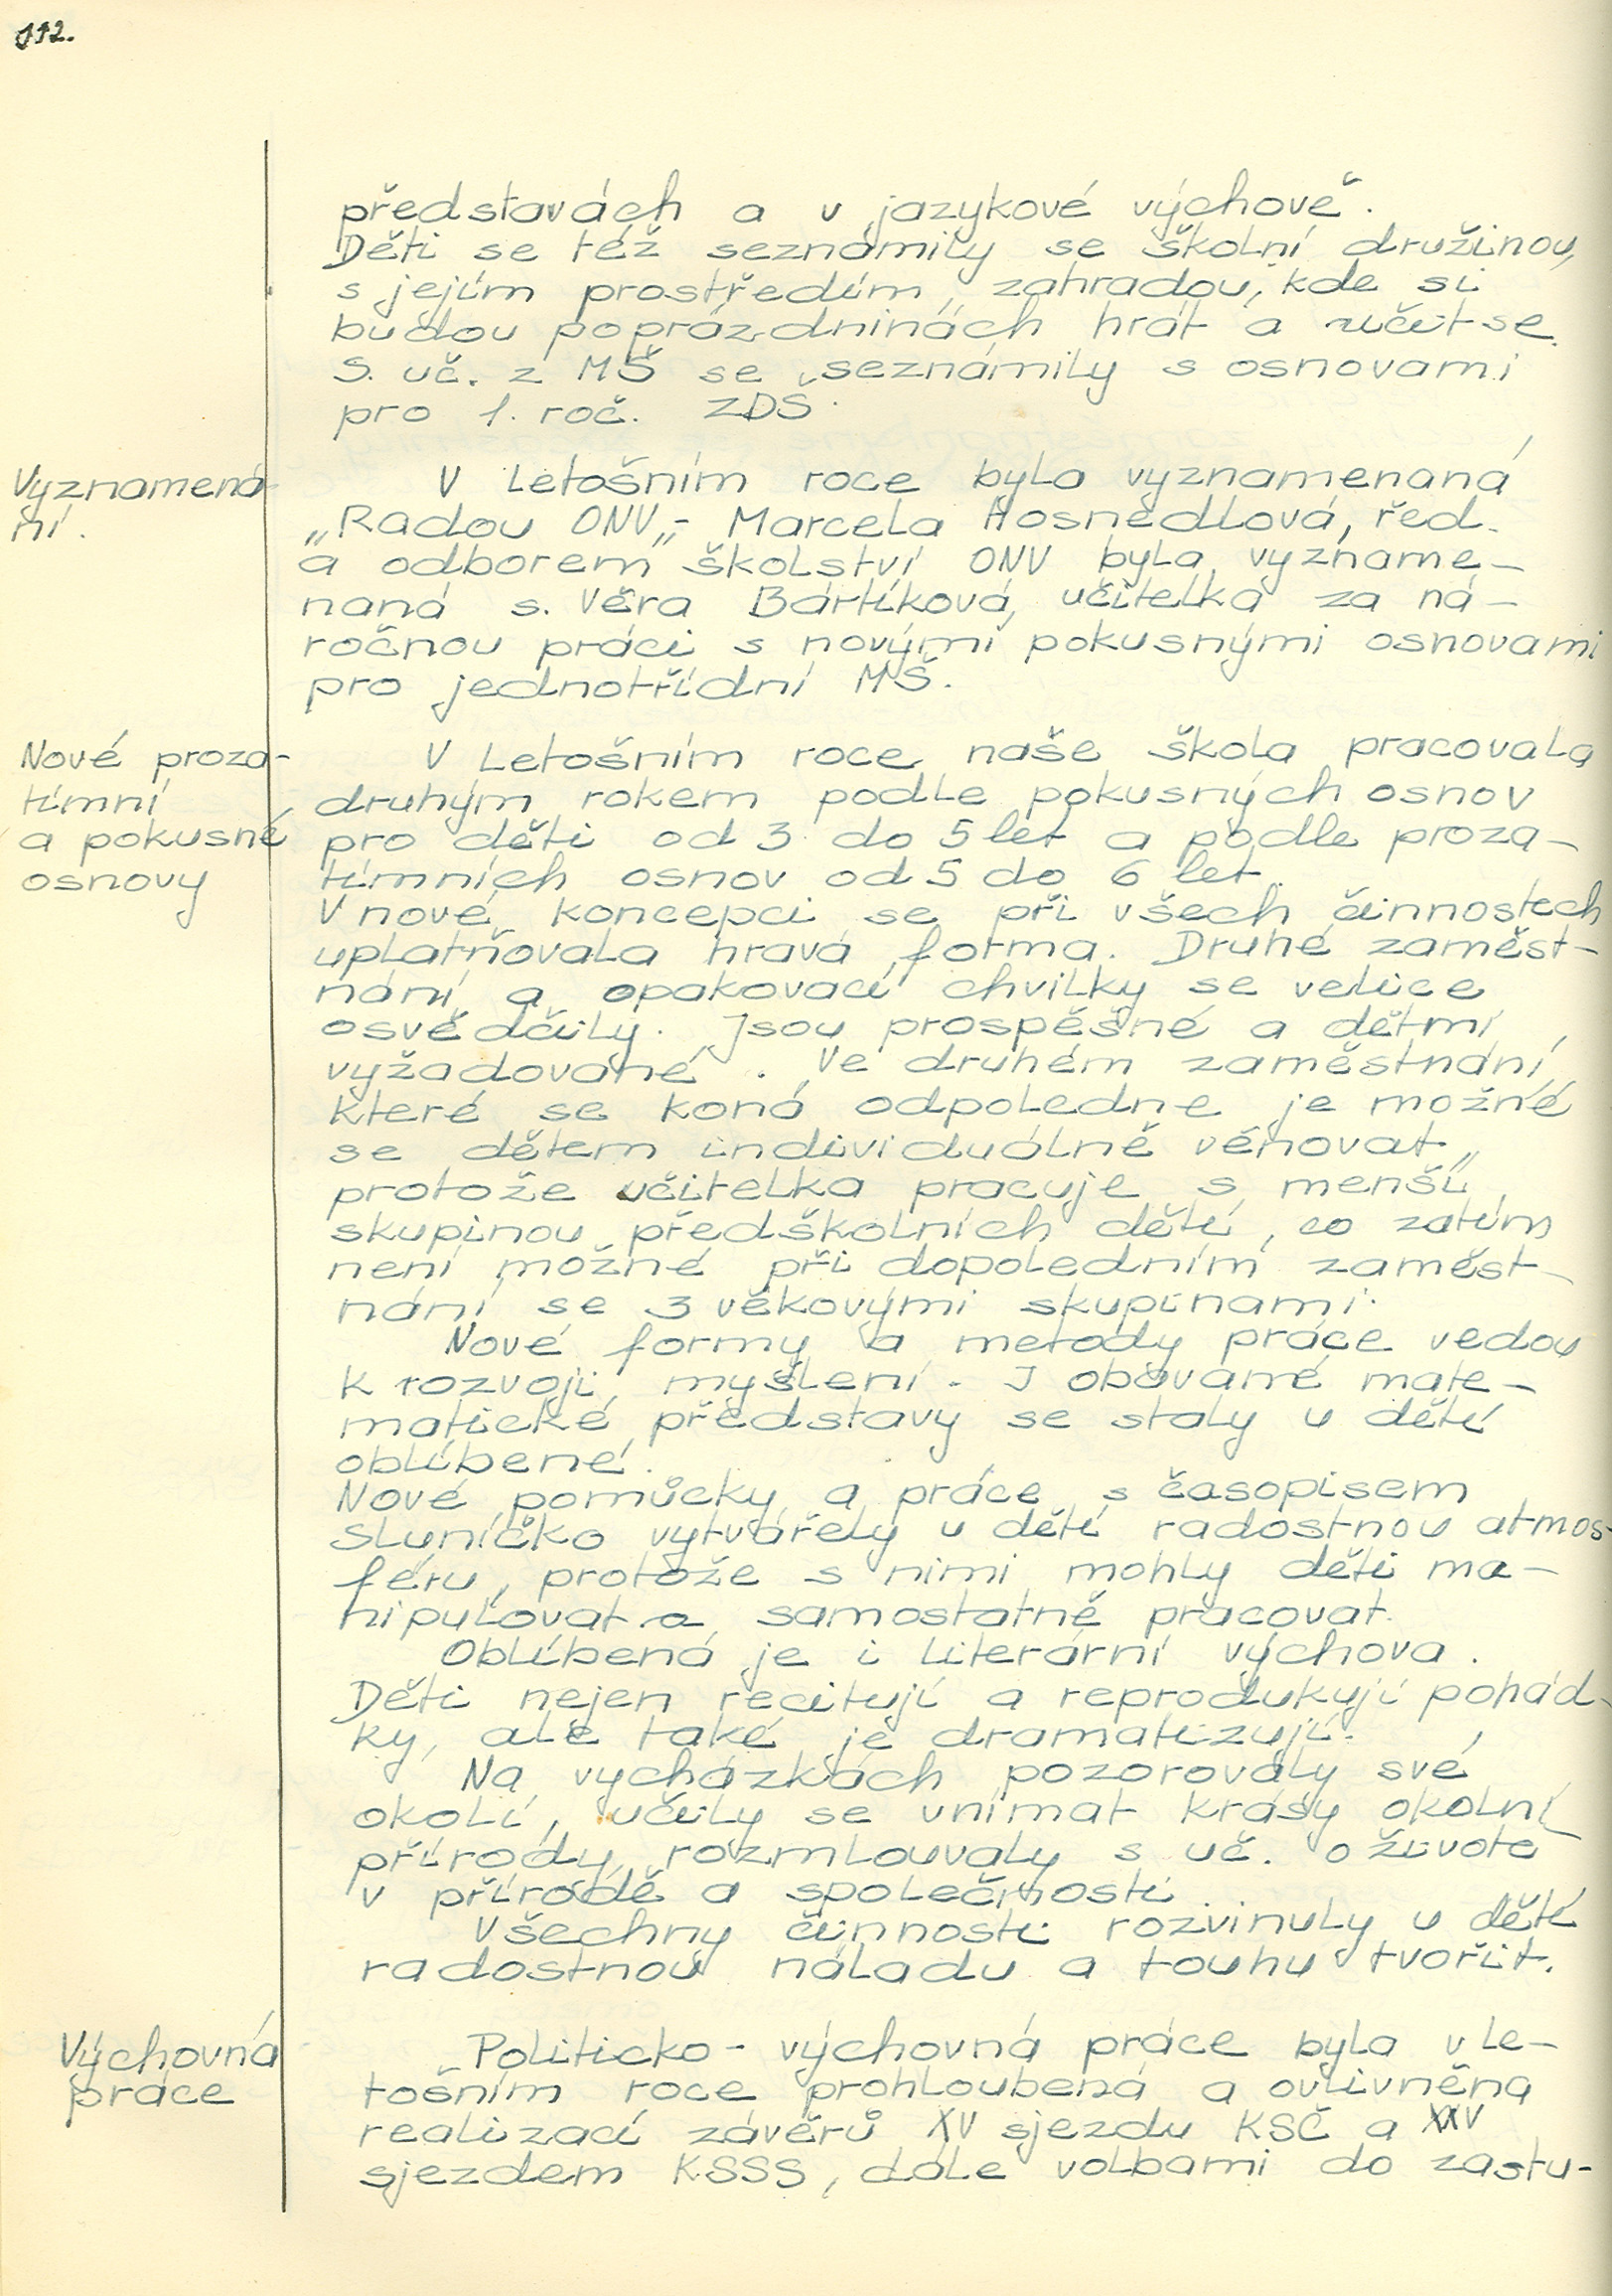 112.
představách a v jazykové výchově.
Děti se též seznámily se školní družinou,
s jejím prostředím, zahradou, kde si
budou poprázdninách hrát a učit se.
S. uč. z MŠ se seznámily s osnovami
pro 1. roč. ZDŠ.
Vyznamená
ní.
V letošním roce byla vyznamenaná
„Radou ONV„- Marcela Hosnedlová, řed.
a odborem školství ONV byla vyzname-
naná s. Věra Bártíková, učitelka za ná-
ročnou práci s novými pokusnými osnovami
pro jednotřídní MŠ.
Nové proza-
tímní
a pokusné
osnovy
V letošním roce naše škola pracovala
druhým rokem podle pokusných osnov
pro děti od 3 do 5 let a podle proza-
tímních osnov od 5 do 6 let.
V nové koncepci se při všech činnostech
uplatňovala hravá forma. Druhé zaměst-
nání a opakovací chvilky se velice
osvědčily. Jsou prospěšné a dětmi
vyžadované. Ve druhém zaměstnání,
které se koná odpoledne je možné
se dětem individuálně věnovat,
protože učitelka pracuje s menší
skupinou předškolních dětí, co zatím
není možné při dopoledním zaměst-
nání se 3 věkovými skupinami.
Nové formy a metody práce vedou
k rozvoji myšlení. I obávané mate-
matické představy se staly u dětí
oblíbené.
Nové pomůcky a práce s časopisem
Sluníčko vytvářely u dětí radostnou atmos-
féru, protože s nimi mohly děti ma-
nipulovat a samostatně pracovat.
Oblíbená je i literární výchova.
Děti nejen recitují a reprodukují pohád-
ky, ale také je dramatizují.
Na vycházkách pozorovaly své
okolí, učily se vnímat krásy okolní
přírody, rozmlouvaly s uč. o životě
v přírodě a společnosti.
Všechny činnosti rozvinuly u dětí
radostnou náladu a touhu tvořit.
Výchovná
práce
Politicko - výchovná práce byla v le-
tošním roce prohloubená a ovlivněna
realizací závěrů XV sjezdu KSČ a XXV
sjezdem KSSS, dále volbami do zastu-